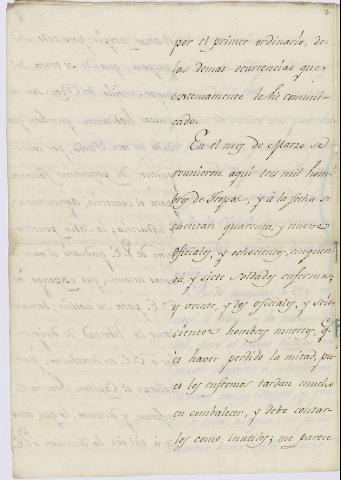 por el primer ordinario, de
las demas ocurrencias que
externamente le he comuni-
cado.
En el mes de Marzo se
reunieron aqui tres mil hom
bres de Tropas, y à la fecha se
cuentan quarenta, y nueve
oficiales, y ochocientos, cinquen
ta, y siete Soldados enfermos,
y veinte, y dos oficiales, y seis
cientos hombres muertos, q.
es haver perdido la mitad, pu
es los enfermos tardan mucho
en combalecer, y debo contar-
los como inutiles; me parece